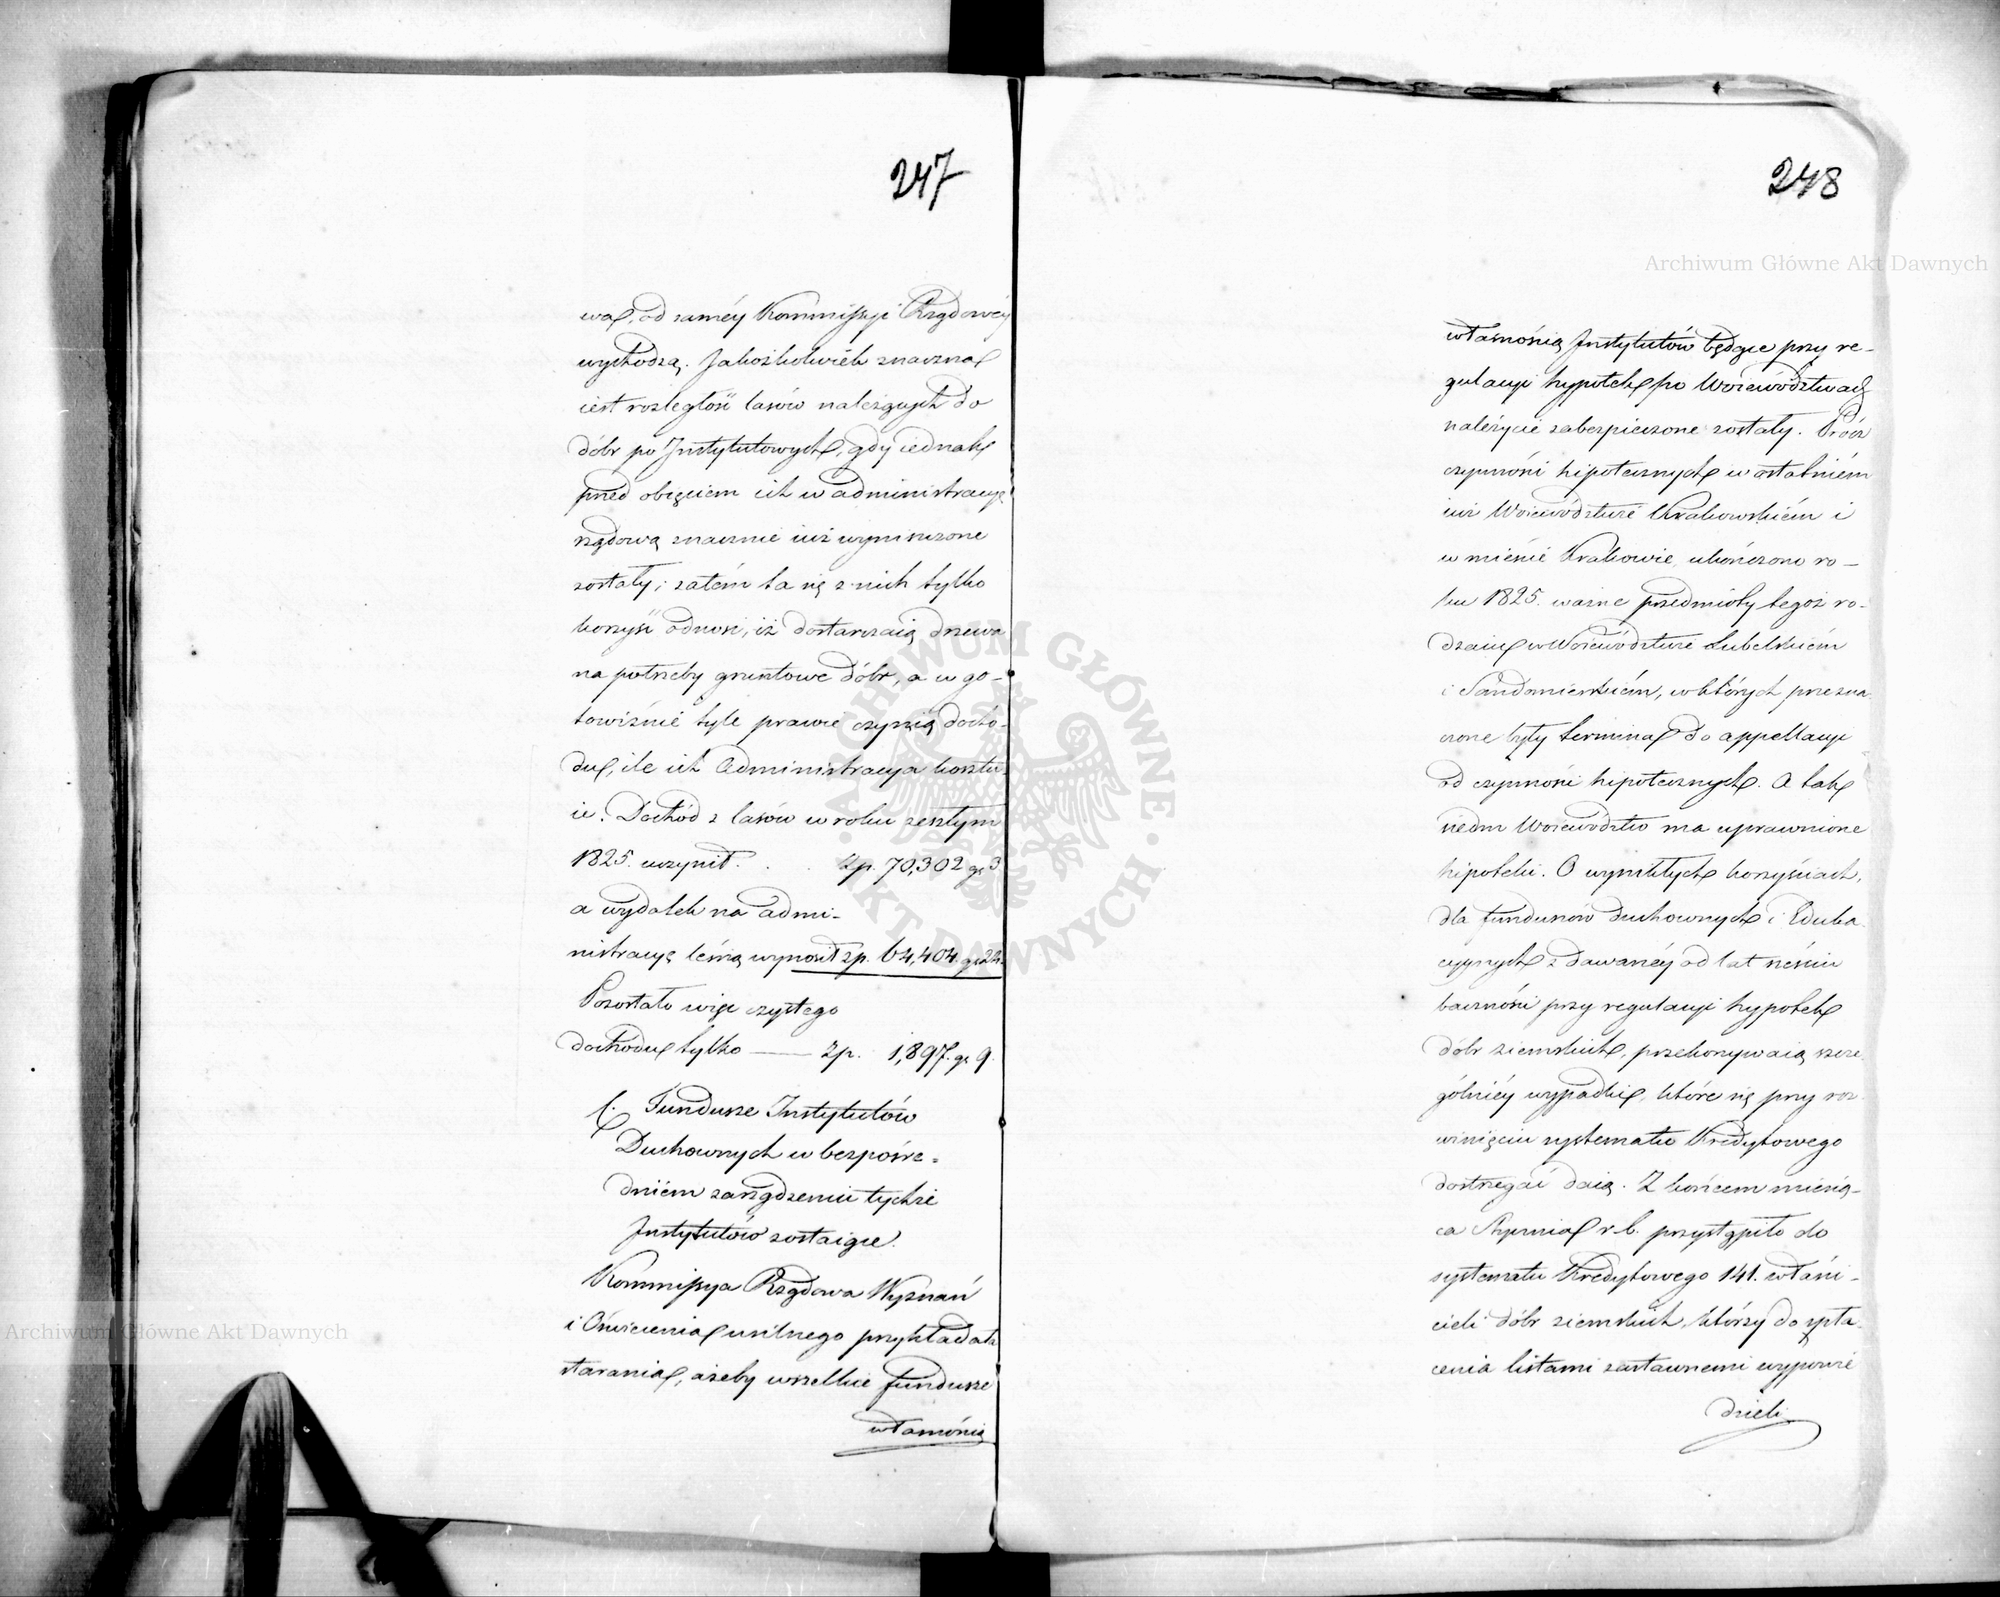 247
wa, od saméy Kommissyi Rządowéy
wychodzą. Jakożkolwiek znaczna
iest rozległość lasów należących do
dóbr po Instytutowych, gdy iednak
przed obięciem ich w administracyę
rządową znacznie iuż wyniszczone
zostały; zatém ta się z nich tylko
korzyść odnosi, iż dostarczaią drzewa
na potrzeby gruntowe dóbr, a w go-
towiźnie tyle prawie czynią docho-
du, ile ich Administracya kosztu-
ie. Dochód z lasów w roku zeszłym
1825. uczynił . . . zp. 70,302 gr 3
a wydatek na admi-
nistracyę leśną wynosił zp. 64,404. gr 24.
Pozostało więc czystego
dochodu tylko —— zp. 1,897. gr 9.
f. Fundusze Instytutów
Duchownych w bezpośre-
dniém zarządzeniu tychże
Instytutów zostaiące.
Kommissya Rządowa Wyznań
i Oświecenia usilnego przykładała
starania, ażeby wszelkie fundusze
własnością
248
własnością Instytutów będące przy re-
gulacyi hypotek po Woiewództwach
należycie zabezpieczone zostały. Prócz
czynności hipotecznych w ostatniém
iuż Woiewództwie Krakowskiém i
w mieście Krakowie, ukończono ro-
ku 1825. ważne przedmioty tegoż ro-
dzaiu w Woiewództwie Lubelskiém
i Sandomierskiém, w których przezna
czone były termina do appellacyi
od czynności hipotecznych. A tak
siedm Woiewództw ma uprawnione
hipoteki. O wynikłych korzyściach,
dla funduszów duchownych i Eduka
cyynych z dawanéy od lat sześciu
baczności przy regulacyi hypotek
dóbr ziemskich, przekonywaią szcze
gólniéy wypadki, które się przy roz
winięciu systematu Kredytowego
dostrzegać daią. Z końcem miesią-
ca Stycznia r. b. przystąpiło do
systematu Kredytowego 141. właści-
cieli dóbr ziemskich, którzy do spła
cenia listami zastawnemi wypowie
dzieli
Archiwum Główne Akt Dawnych
Archiwum Główne Akt Dawnych
ARCHIWUM GŁÓWNE · AKT DAWNYCH ·